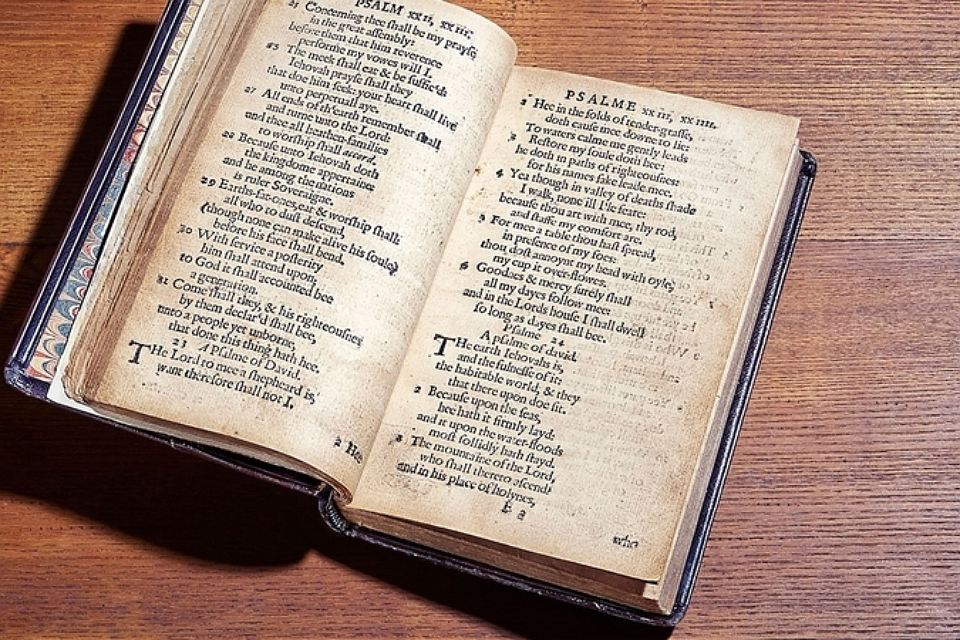 PSALM xxii, xxiii.
25 Concerning thee shall be my prayse
in the great assembly:
before them that him reverence
performe my vowes will I.
The meek shall eat & be suffic'd:
Iehovah prayse shall they
that doe him seek: your heart shall live
unto perpetuall aye.
27 All ends of th'earth remember shall
and turne unto the Lord:
and thee all heathen-families
to worship shall accord.
28 Because unto Iehovah doth
the kingdome appertaine:
and he among the nations
is ruler Soveraigne.
29 Earths-fat-ones, eat & worship shall:
all who to dust descend,
(though none can make alive his soule)
before his face shall bend.
30 With service a posterity
him shall attend upon;
to God it shall accounted bee
a generation.
31 Come shall they, & his righteousnes
by them declar'd shall bee,
unto a people yet unborne,
that done this thing hath hee.
23 A Psalme of David.
THe Lord to mee a shepheard is,
want therefore shall not I.
2 Hee
PSALME xxiii, xxiiii.
2 Hee in the folds of tender-grasse,
doth cause mee downe to lie:
To waters calme me gently leads
3 Restore my soule doth hee:
he doth in paths of righteousnes:
for his names sake leade mee.
4 Yea though in valley of deaths shade
I walk, none ill I'le feare:
because thou art with mee, thy rod,
and staffe my comfort are.
5 For mee a table thou hast spread,
in presence of my foes:
thou dost annoynt my head with oyle,
my cup it over-flowes.
6 Goodnes & mercy surely shall
all my dayes follow mee:
and in the Lords house I shall dwell
so long as dayes shall bee.
Psalme 24
A psalme of david.
THe earth Iehovahs is,
and the fulnesse of it:
the habitable world, & they
that there upon doe sit.
2 Because upon the seas,
hee hath it firmly layd:
and it upon the water-floods
most sollidly hath stayd.
3 The mountaine of the Lord,
who shall thereto ascend?
and in his place of holynes,
E 2
who